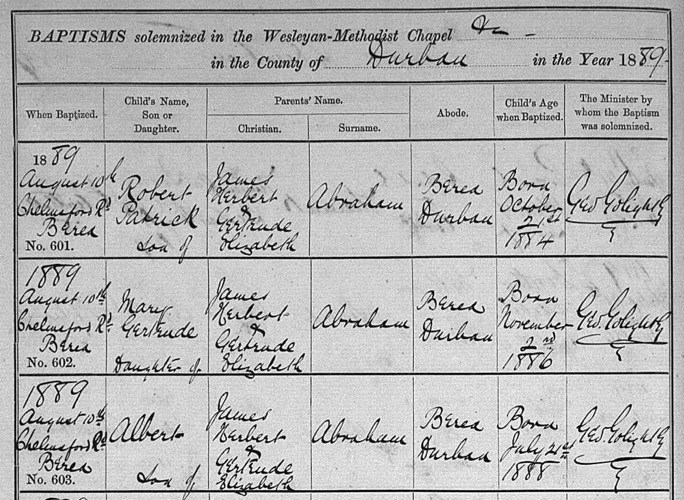 BAPTISMS solemnized in the Wesleyan-Methodist Chapel
in the County of Durban in the Year 1889.
When Baptized.
Child's Name,
Son or
Daughter.
Parents' Name.
Christian.
Surname.
Abode.
Child's Age
when Baptized.
The Minister by
whom the Baptism
was solemnized.
1889
August 10th
Chelmsford Rd
Berea
No. 601.
Robert
Patrick
Son of
James
Herbert
&
Gertrude
Elizabeth
Abraham
Berea
Durban
Born
October
21st
1884
Geo. Golightly
1889
August 10th
Chelmsford Rd
Berea
No. 602.
Mary
Gertrude
Daughter of
James
Herbert
&
Gertrude
Elizabeth
Abraham
Berea
Durban
Born
November
2nd
1886
Geo. Golightly
1889
August 10th
Chelmsford Rd
Berea
No. 603.
Albert
Son of
James
Herbert
&
Gertrude
Elizabeth
Abraham
Berea
Durban
Born
July 21st
1888
Geo. Golightly